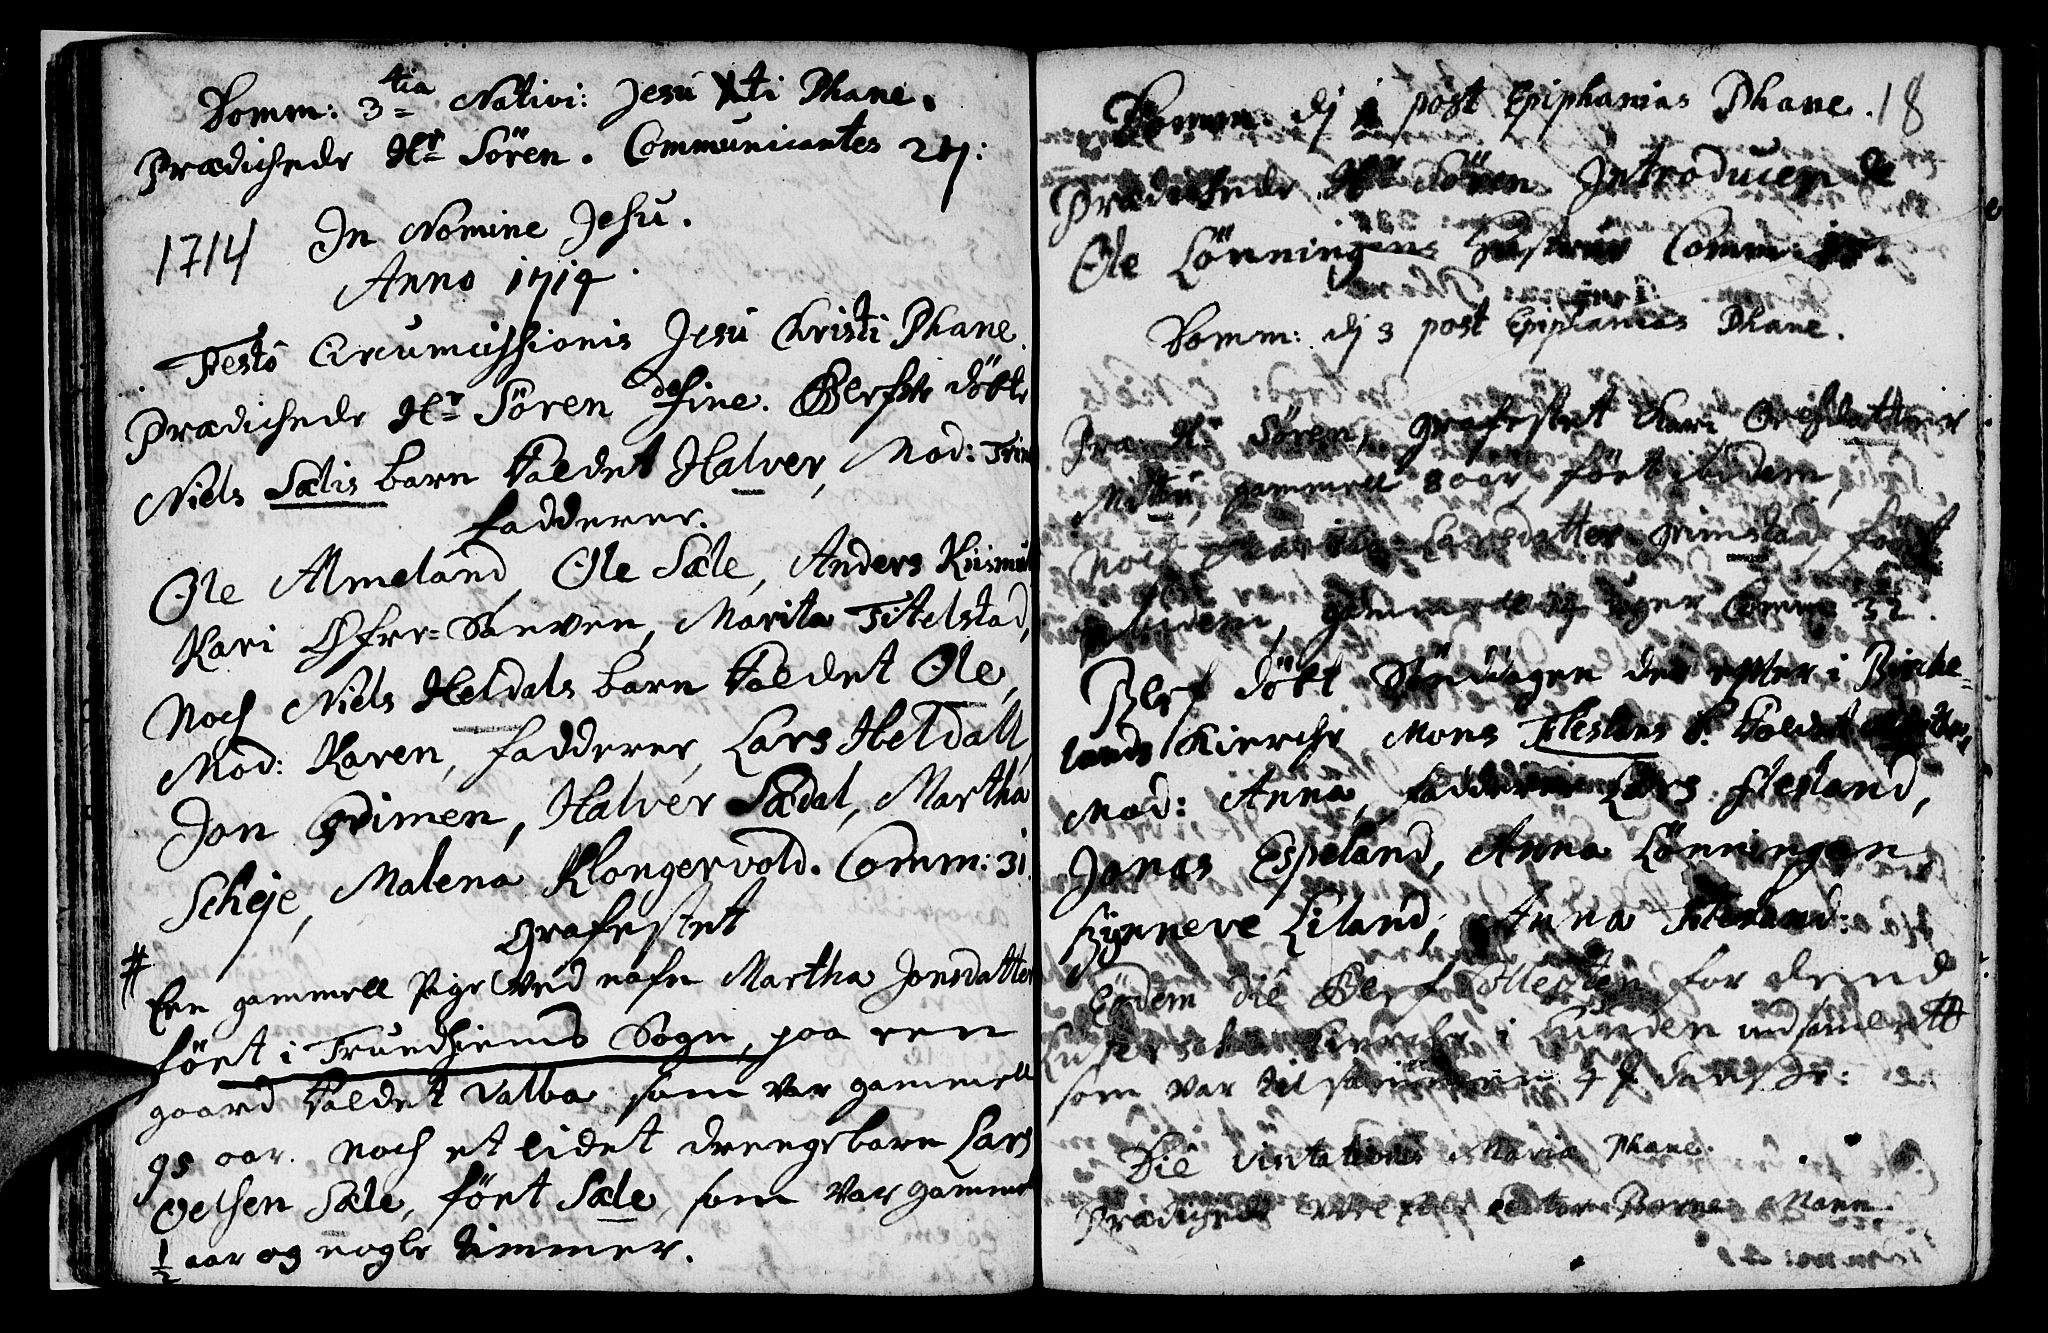 Domm: 3tia Nativi: Jesu Xti Phane.
Prædichede Hr Sören. Communicantes 27:
1714 In Nomine Jesu.
Anno 1714.
Festo Circumcissionis Jesu Christi Phane.
Prædichede Hr Sören sine. Blef döbt
Niels Sælis barn kaldet Halver, Mod:
fadderer.
Ole Almeland, Ole Sæle, Anders
Kari Öfre=Sanven, Marita Titelstad,
Noch Niels Heldals barn kaldet Ole,
Mod: Karen, fadderer, Lars Heldall,
Jon Grimen, Halver Sædal, Martha
Scheje, Malena Klongervold. Comm: 31.
Grafestet
# Een gammell Pige ved nafn Martha Jonsdatter
föet i Trundhiems Sogn, paa een
gaard kaldet Valba som var gammell
95 aar. Noch et lidet drengebarn Lars
Oelsen Sæle, föet Sæle, som var gammel
1/2 aar og nogle timmer.
Domm: dj 1 post Epiphanias Phane. 18
Prædichede Hr Sören Introducerede
Ole Lönningens hustrue Comm:
Domm: dj 3 post Epiphanias Phane.
Præ: Hr Sören, grafestet Kari
Mittun, gammell 8 aar, föet ibidem,
Noch Larsdatter Grimstad, föet
ibidem, gammell uger Comm: 32.
Blef döbt Söndagen der effter i Birke=
lands Kierche Mons Fleslans b. kaldet
Mod: Anna, fadderer Lars Flesland,
Jonas Espeland, Anna Lönningen,
Synneve Liland, Anna Flesland:
Eodem die Blef Collecten for dend
kierche i Linden indsamlett
som var tilsammen 4 danske:
Die visitationis Maria Phane.
Prædichede Mann.
Comm: